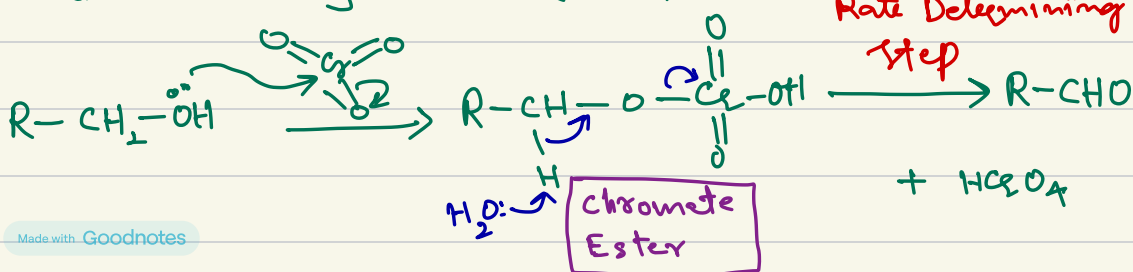 Rate Determining
Step
O O
Cr
O
R - CH2 - ÖH
O
R - CH - O - Cr - OH
O
H
R - CHO
+ HCrO4
H2O:
Chromate
Ester
Made with Goodnotes